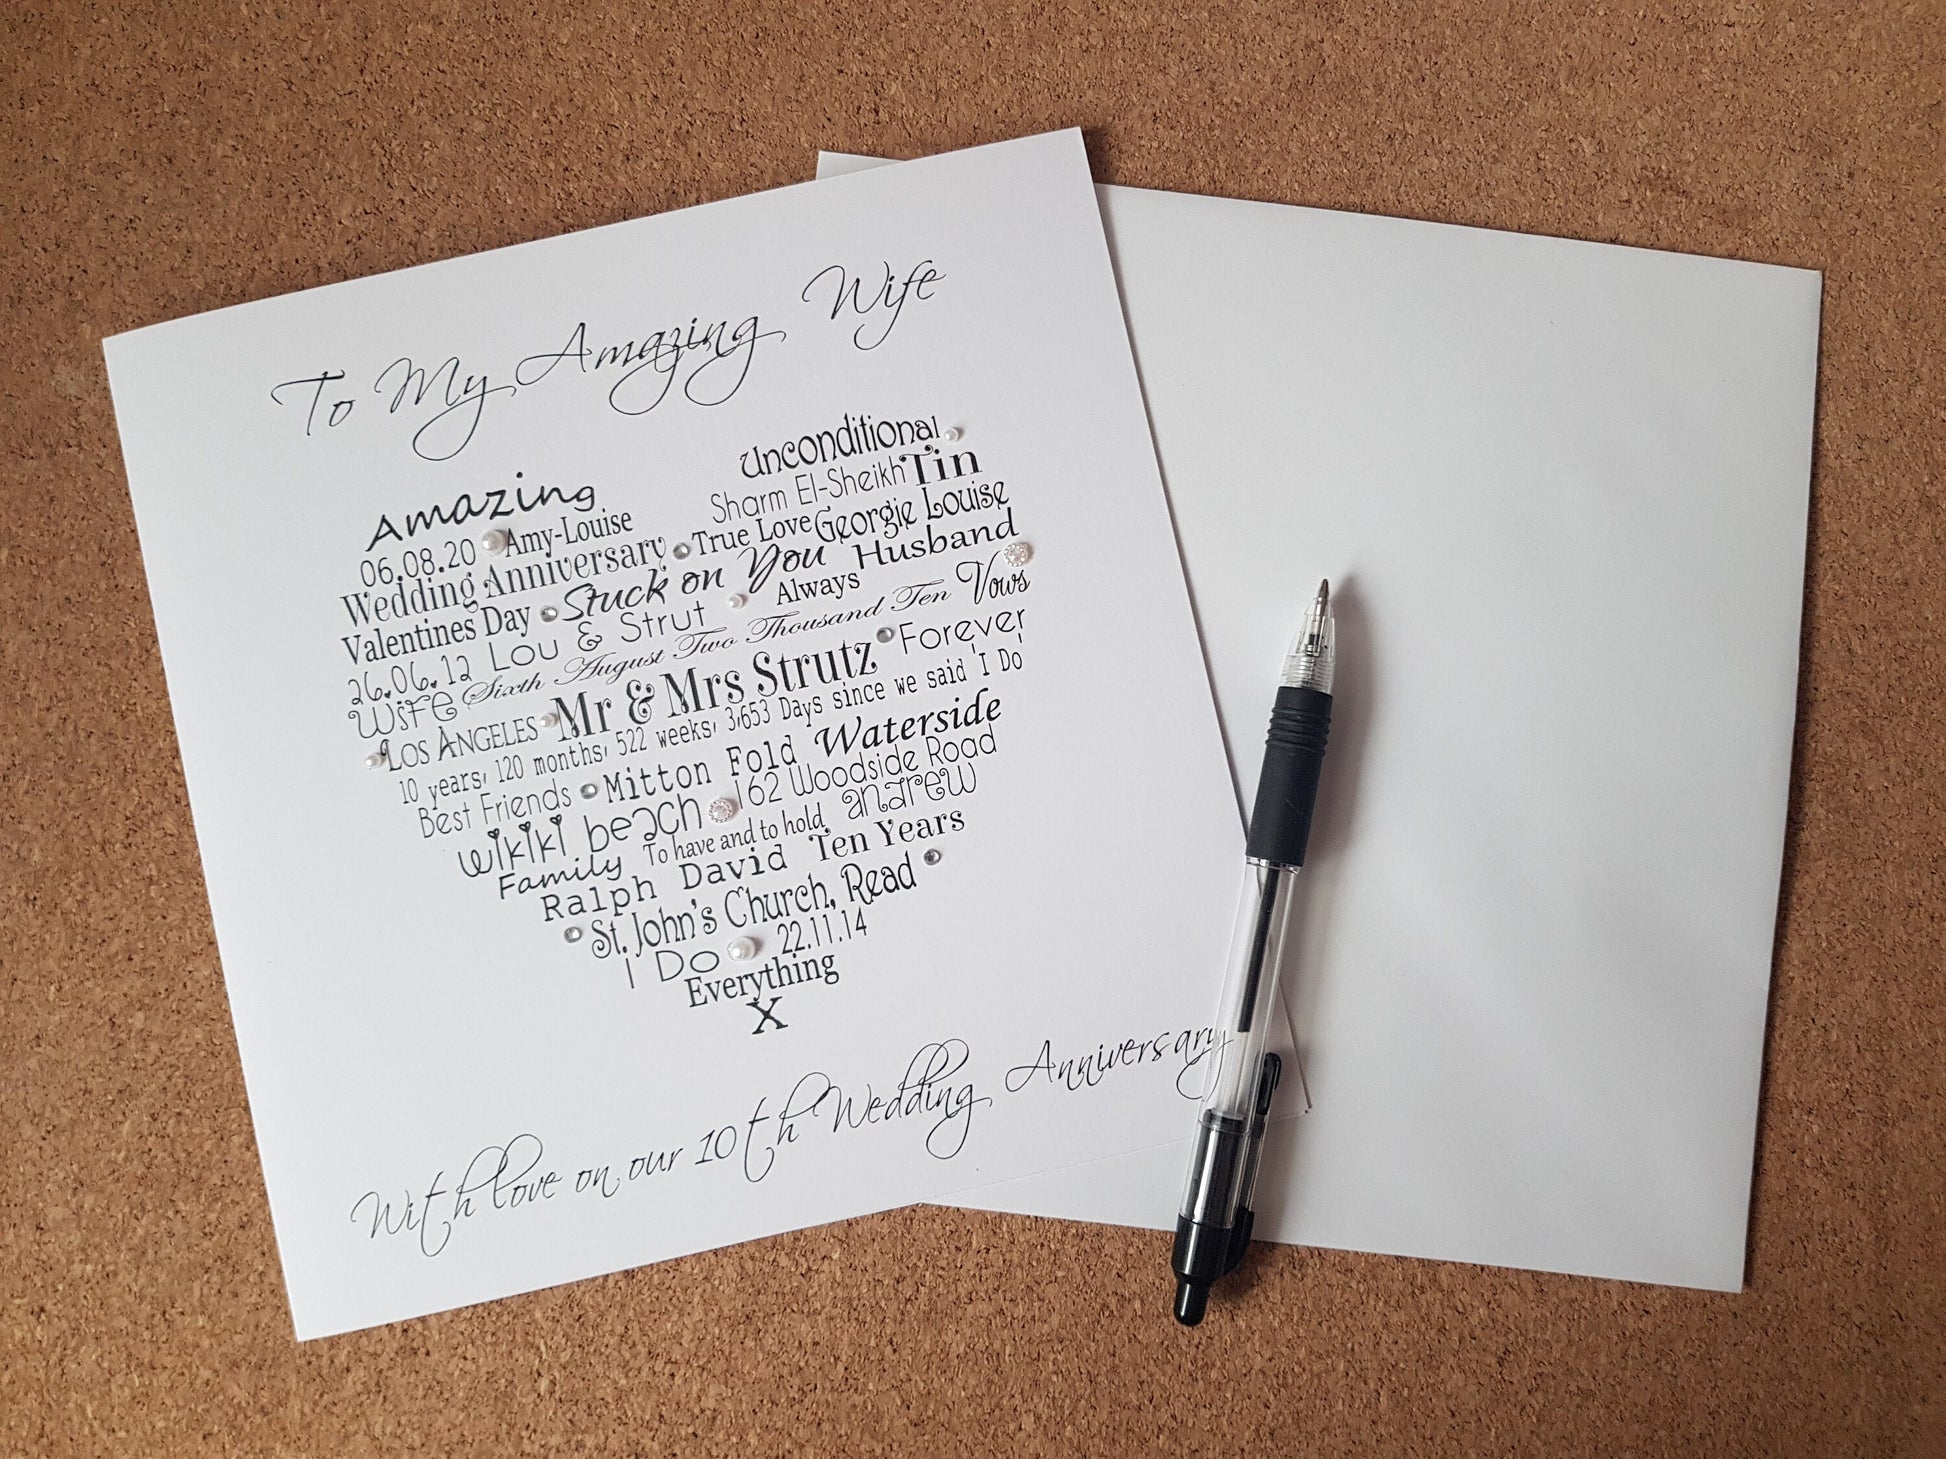 To My Amazing Wife
Unconditional
Amazing Sharm El-Sheikh Tin
06.08.20 Amy-Louise True Love Georgie Louise
Wedding Anniversary Stuck on You Husband
Valentines Day Lou & Strut Always Vows
26.06.12 Sixth August Two Thousand Ten Forever
Wife Mr & Mrs Strutz
Los Angeles 10 years, 120 months, 522 weeks, 3,653 Days since we said 'I Do'
Best Friends Mitton Fold Waterside
wikiki beach 162 Woodside Road
Family To have and to hold andrew
Ralph David Ten Years
St. John's Church, Read
I Do 22.11.14
Everything
X
With love on our 10th Wedding Anniversary